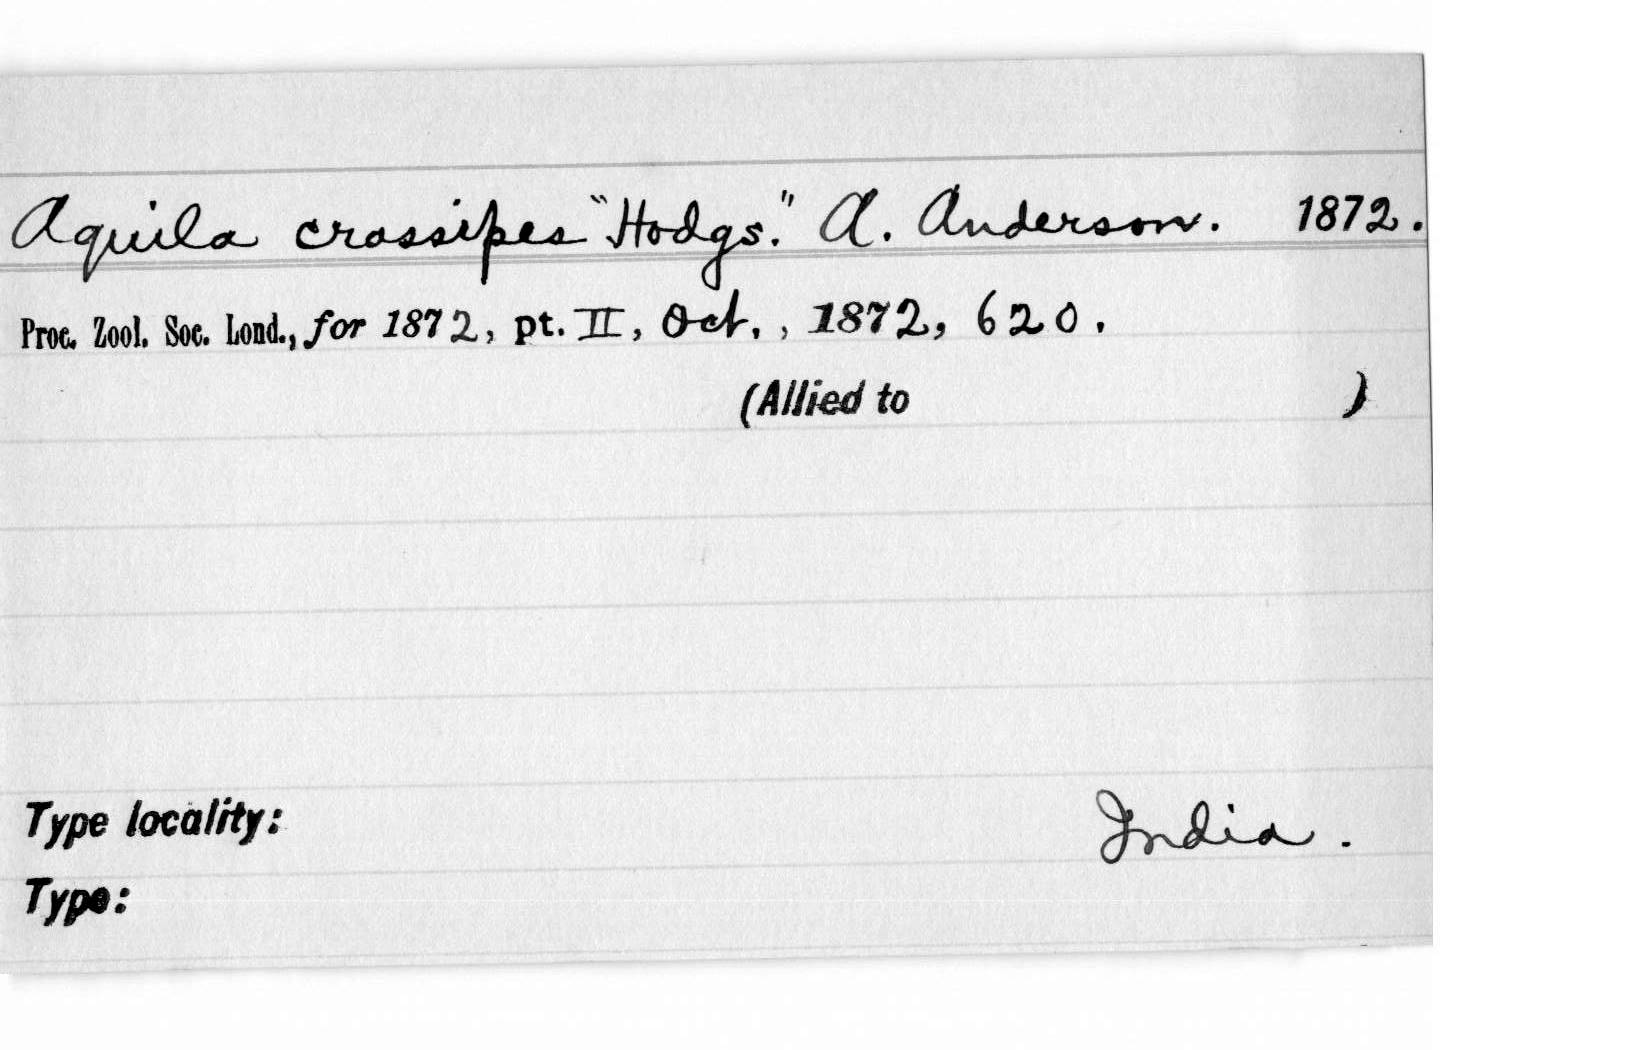 Aquila crassipes "Hodgs." A. Anderson. 1872.
Proc. Zool. Soc. Lond., for 1872, pt. II, Oct. , 1872, 620.
(Allied to )
Type locality: India.
Type: